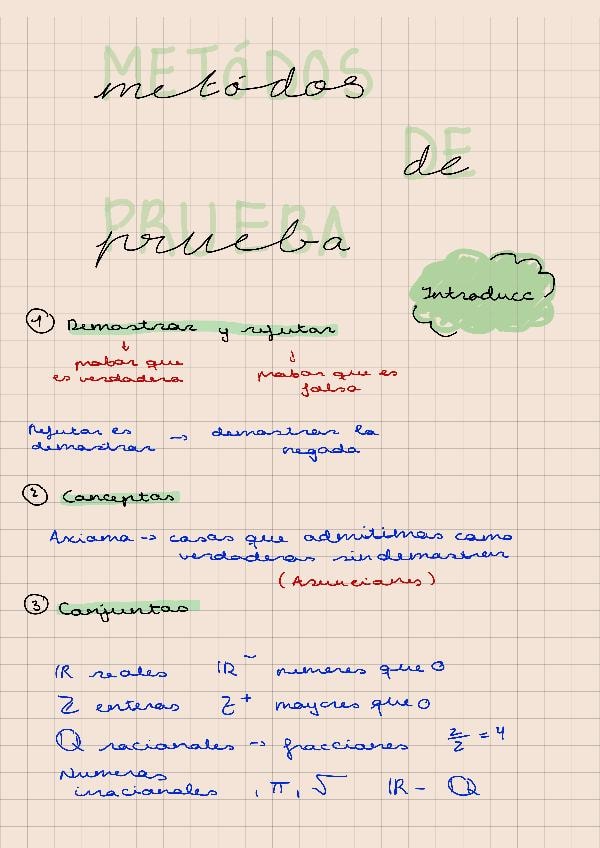 METÓDOS
metódos
DE
de
PRUEBA
prueba
Introducc
1 Demostrar y refutar
↓ ↓
probar que probar que es
es verdadera falsa
Refutar es → demostrar la
demostrar negada
2 Conceptos
Axioma → cosas que admitimos como
verdaderas sin demostrar
(Asunciones)
3 Conjuntos
IR reales IR⁻ menores que 0
Z enteros Z⁺ mayores que 0
Q racionales → fracciones = 4
Numeros
irracionales , π, √ IR - Q